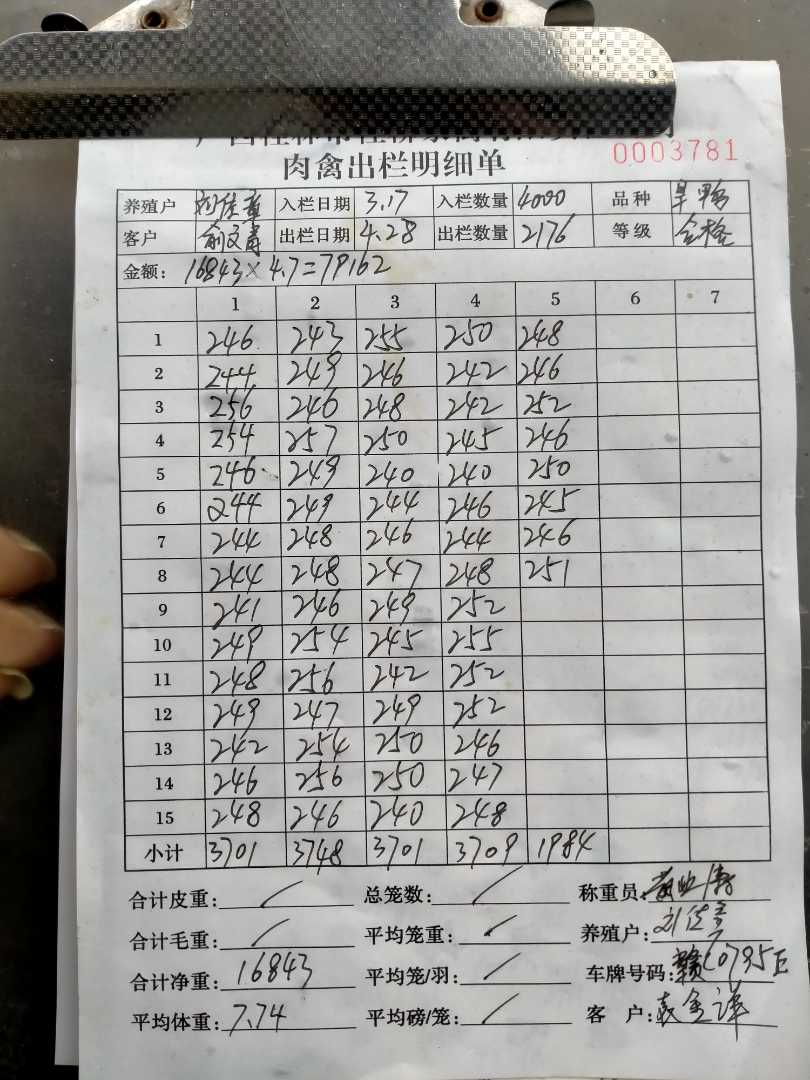 肉禽出栏明细单 0003781
养殖户 入栏日期 3.17 入栏数量 4000 品种 旱鸭
客户 出栏日期 4.28 出栏数量 2176 等级 合格
金额: 16843×4.7=79162
1 2 3 4 5 6 7
1 246 243 255 250 248
2 244 249 246 242 246
3 256 246 248 242 252
4 254 257 250 245 246
5 246 249 240 240 250
6 244 249 244 246 245
7 244 248 246 244 246
8 244 248 247 248 251
9 241 246 249 252
10 249 254 245 255
11 248 256 242 252
12 249 247 249 252
13 242 254 250 246
14 246 256 250 247
15 248 246 240 248
小计 3701 3748 3701 3709 1984
合计皮重: / 总笼数: / 称重员:
合计毛重: / 平均笼重: / 养殖户:
合计净重: 16843 平均笼/羽: / 车牌号码:
平均体重: 7.74 平均磅/笼: / 客 户: